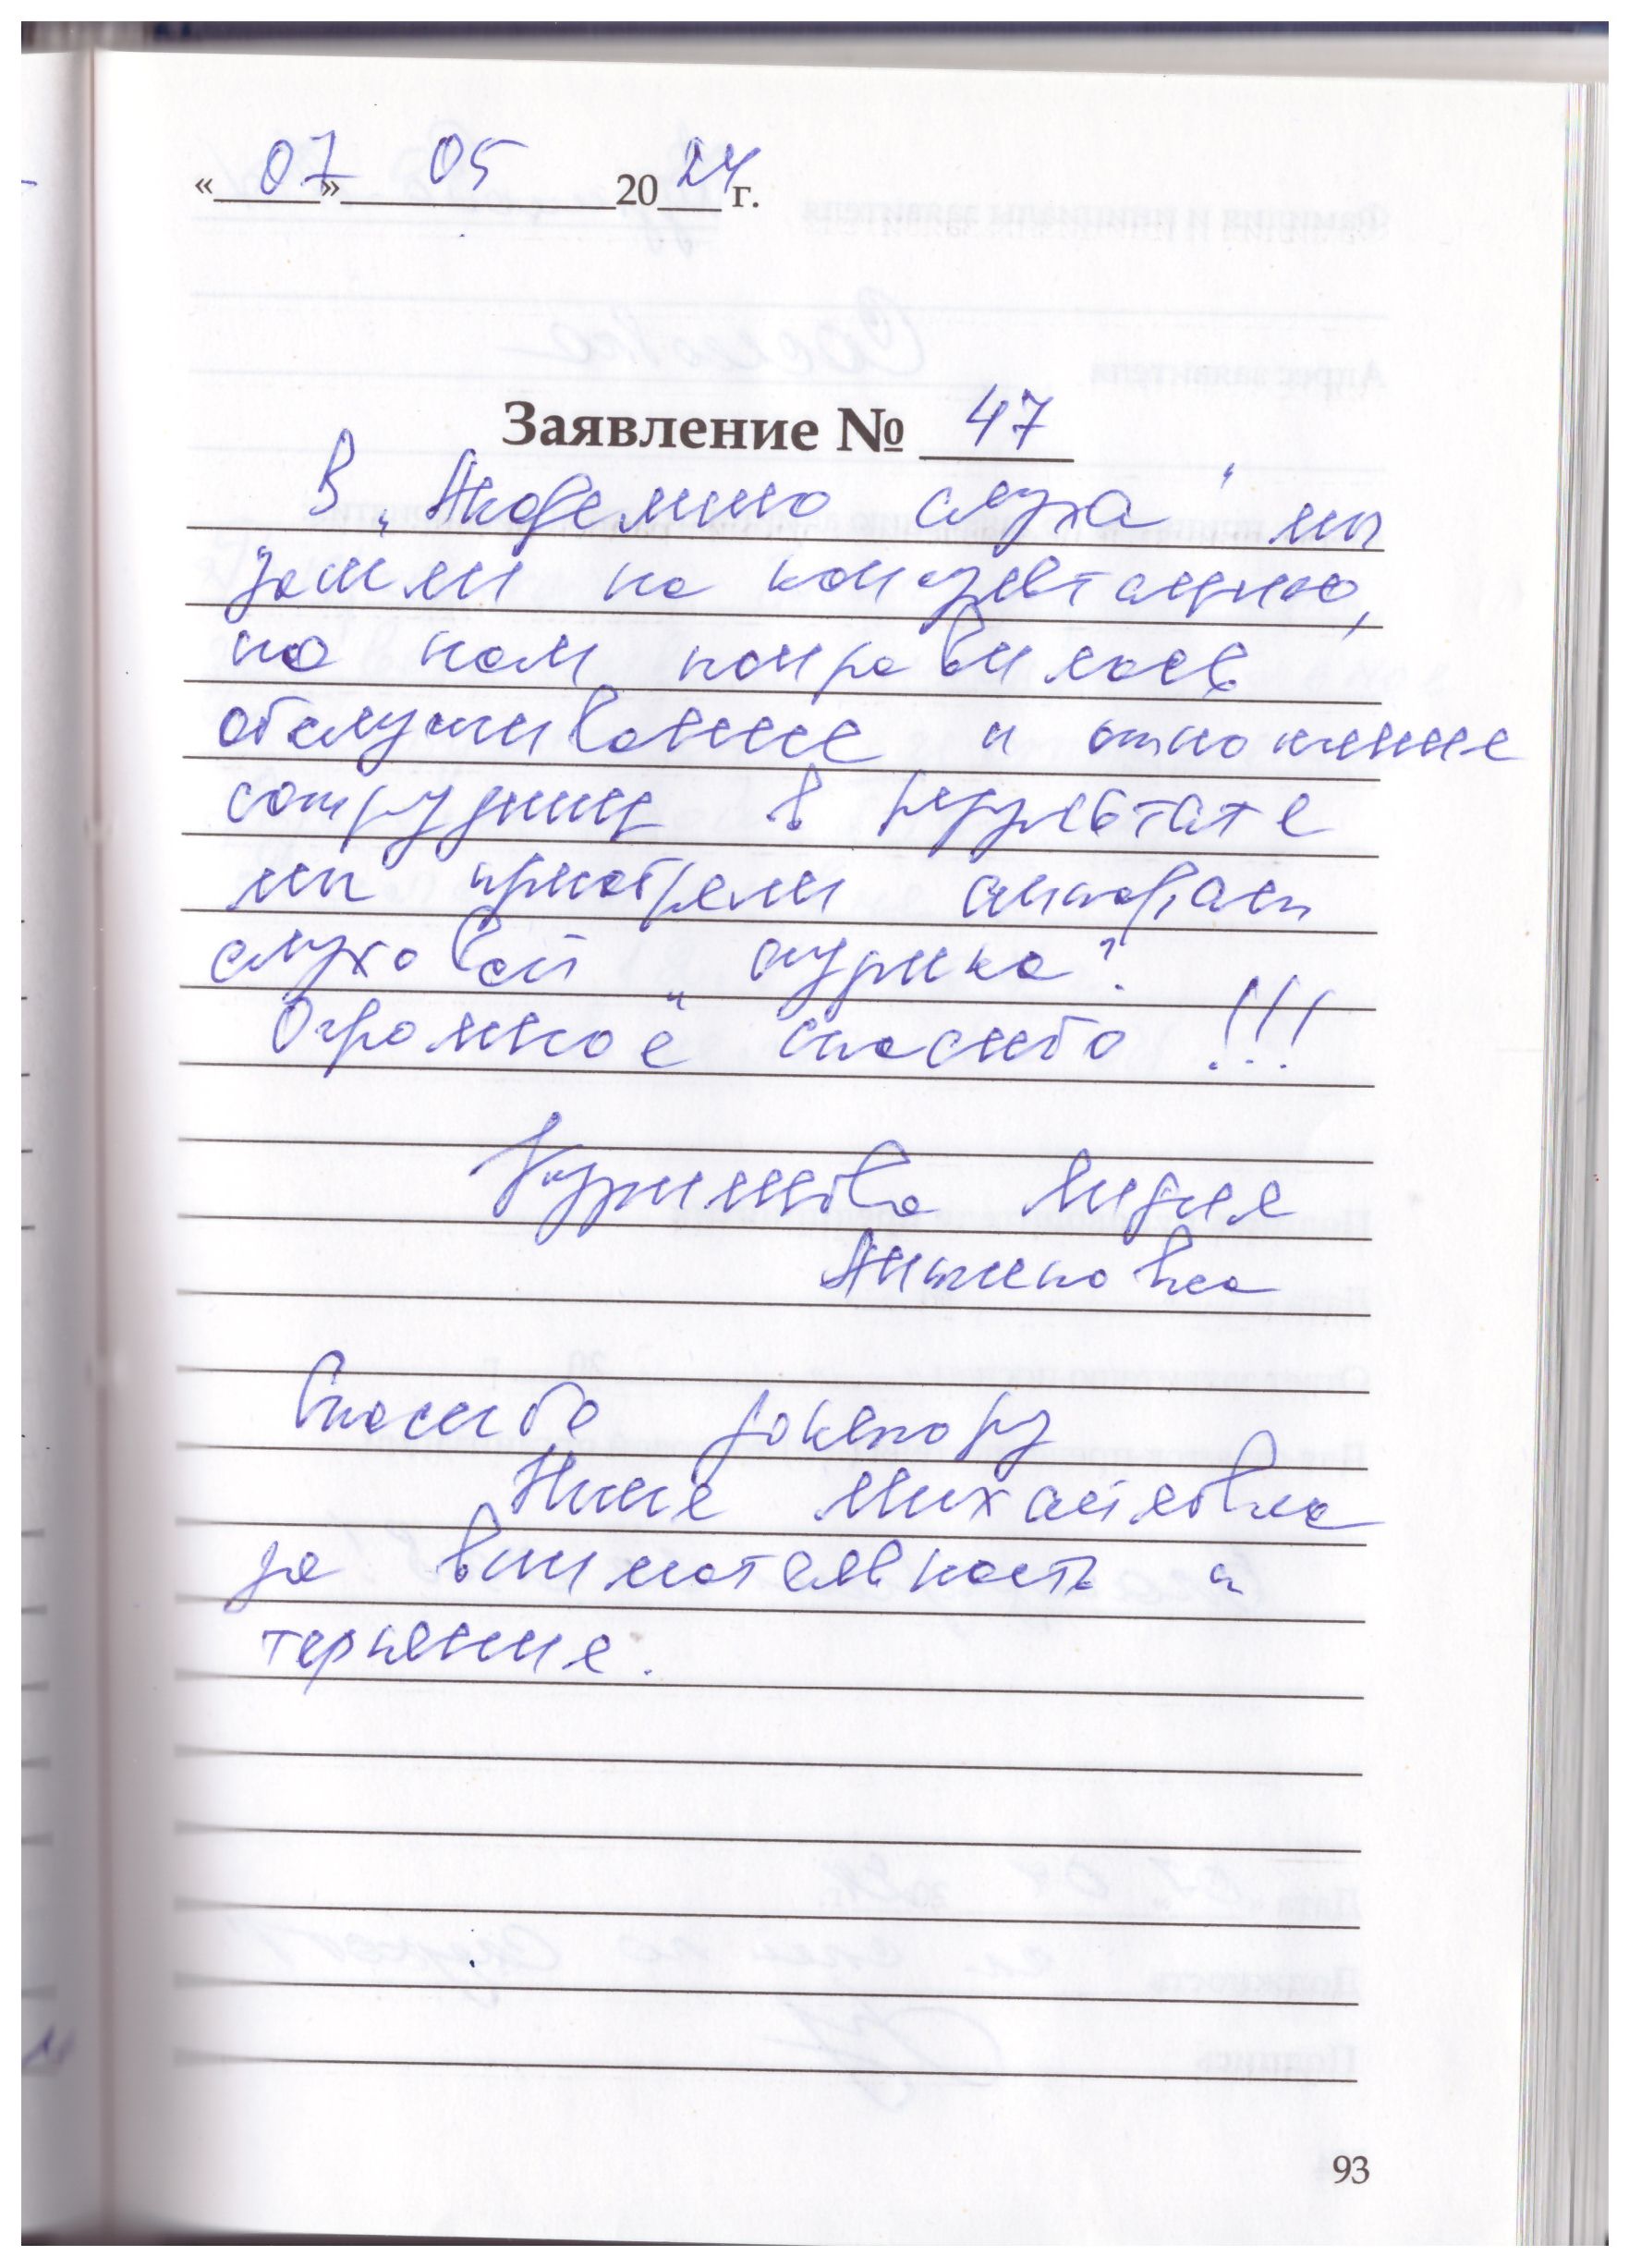 «07» 05 2024 г.
Заявление № 47
В „Академию слуха“ мы
зашли на консультацию,
но нам понравилось
обслуживание и отношение
сотрудниц в результате
мы приобрели аппарат
слуховой „аурика“.
Огромное спасибо !!!
Лидия
Антиповна
Спасибо доктору
Нине Михайловне
за внимательность и
терпение.
93